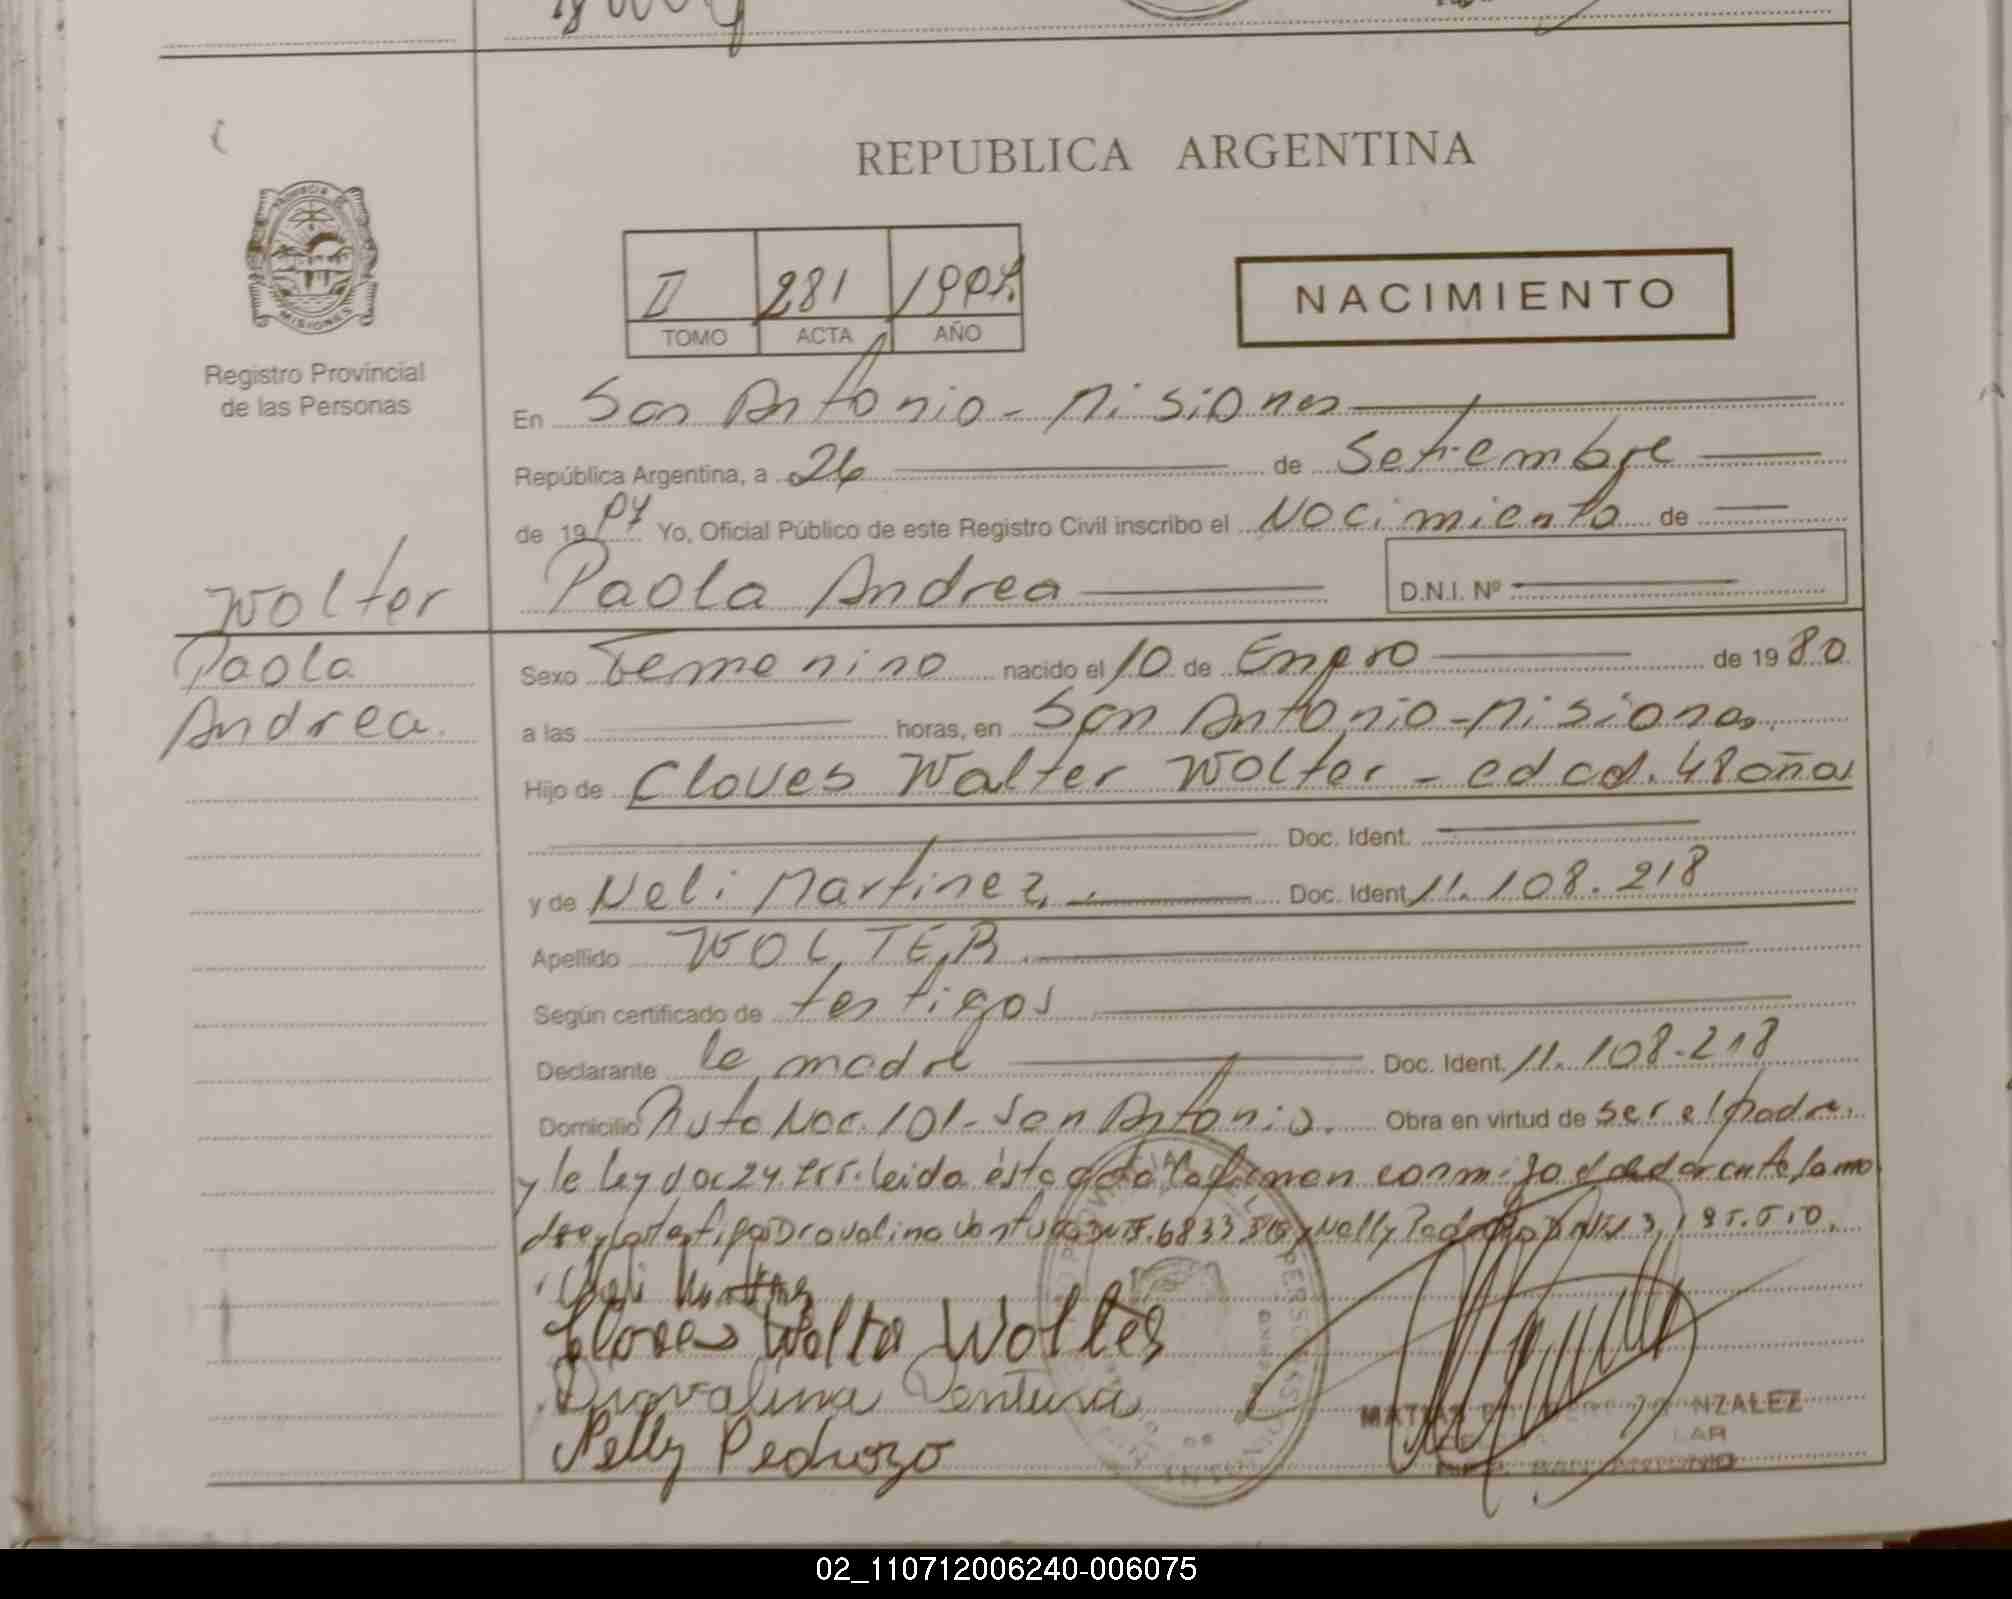 REPUBLICA ARGENTINA
PROVINCIA DE
MISIONES
Registro Provincial
de las Personas
II 281
TOMO ACTA AÑO
NACIMIENTO
En San Antonio - Misiones
República Argentina, a 26 de Setiembre
de 19 Yo, Oficial Público de este Registro Civil inscribo el Nacimiento de
Paola Andrea D.N.I. Nº
Wolter
Paola
Andrea.
Sexo Femenino nacido el 10 de Enero de 1980
a las horas, en San Antonio - Misiones.
Hijo de Cloves Walter Wolter - edad. 48 años
Doc. Ident.
y de Neli Martinez. Doc. Ident 11.108.218
Apellido WOLTER
Según certificado de testigos
Declarante la madre Doc. Ident. 11.108.218
Domicilio Ruta Nac. 101 - San Antonio. Obra en virtud de ser el padre
y la ley leida ésta acta la firman conmigo el la ma
dre y los testigos Diovalina Ventura y Nelly Pedrozo
Neli Martinez
Cloves Walter Wolter
Diovalina Ventura
Nelly Pedrozo
MATIAS NZALEZ
LAR
SAN ANTONIO
02_110712006240-006075